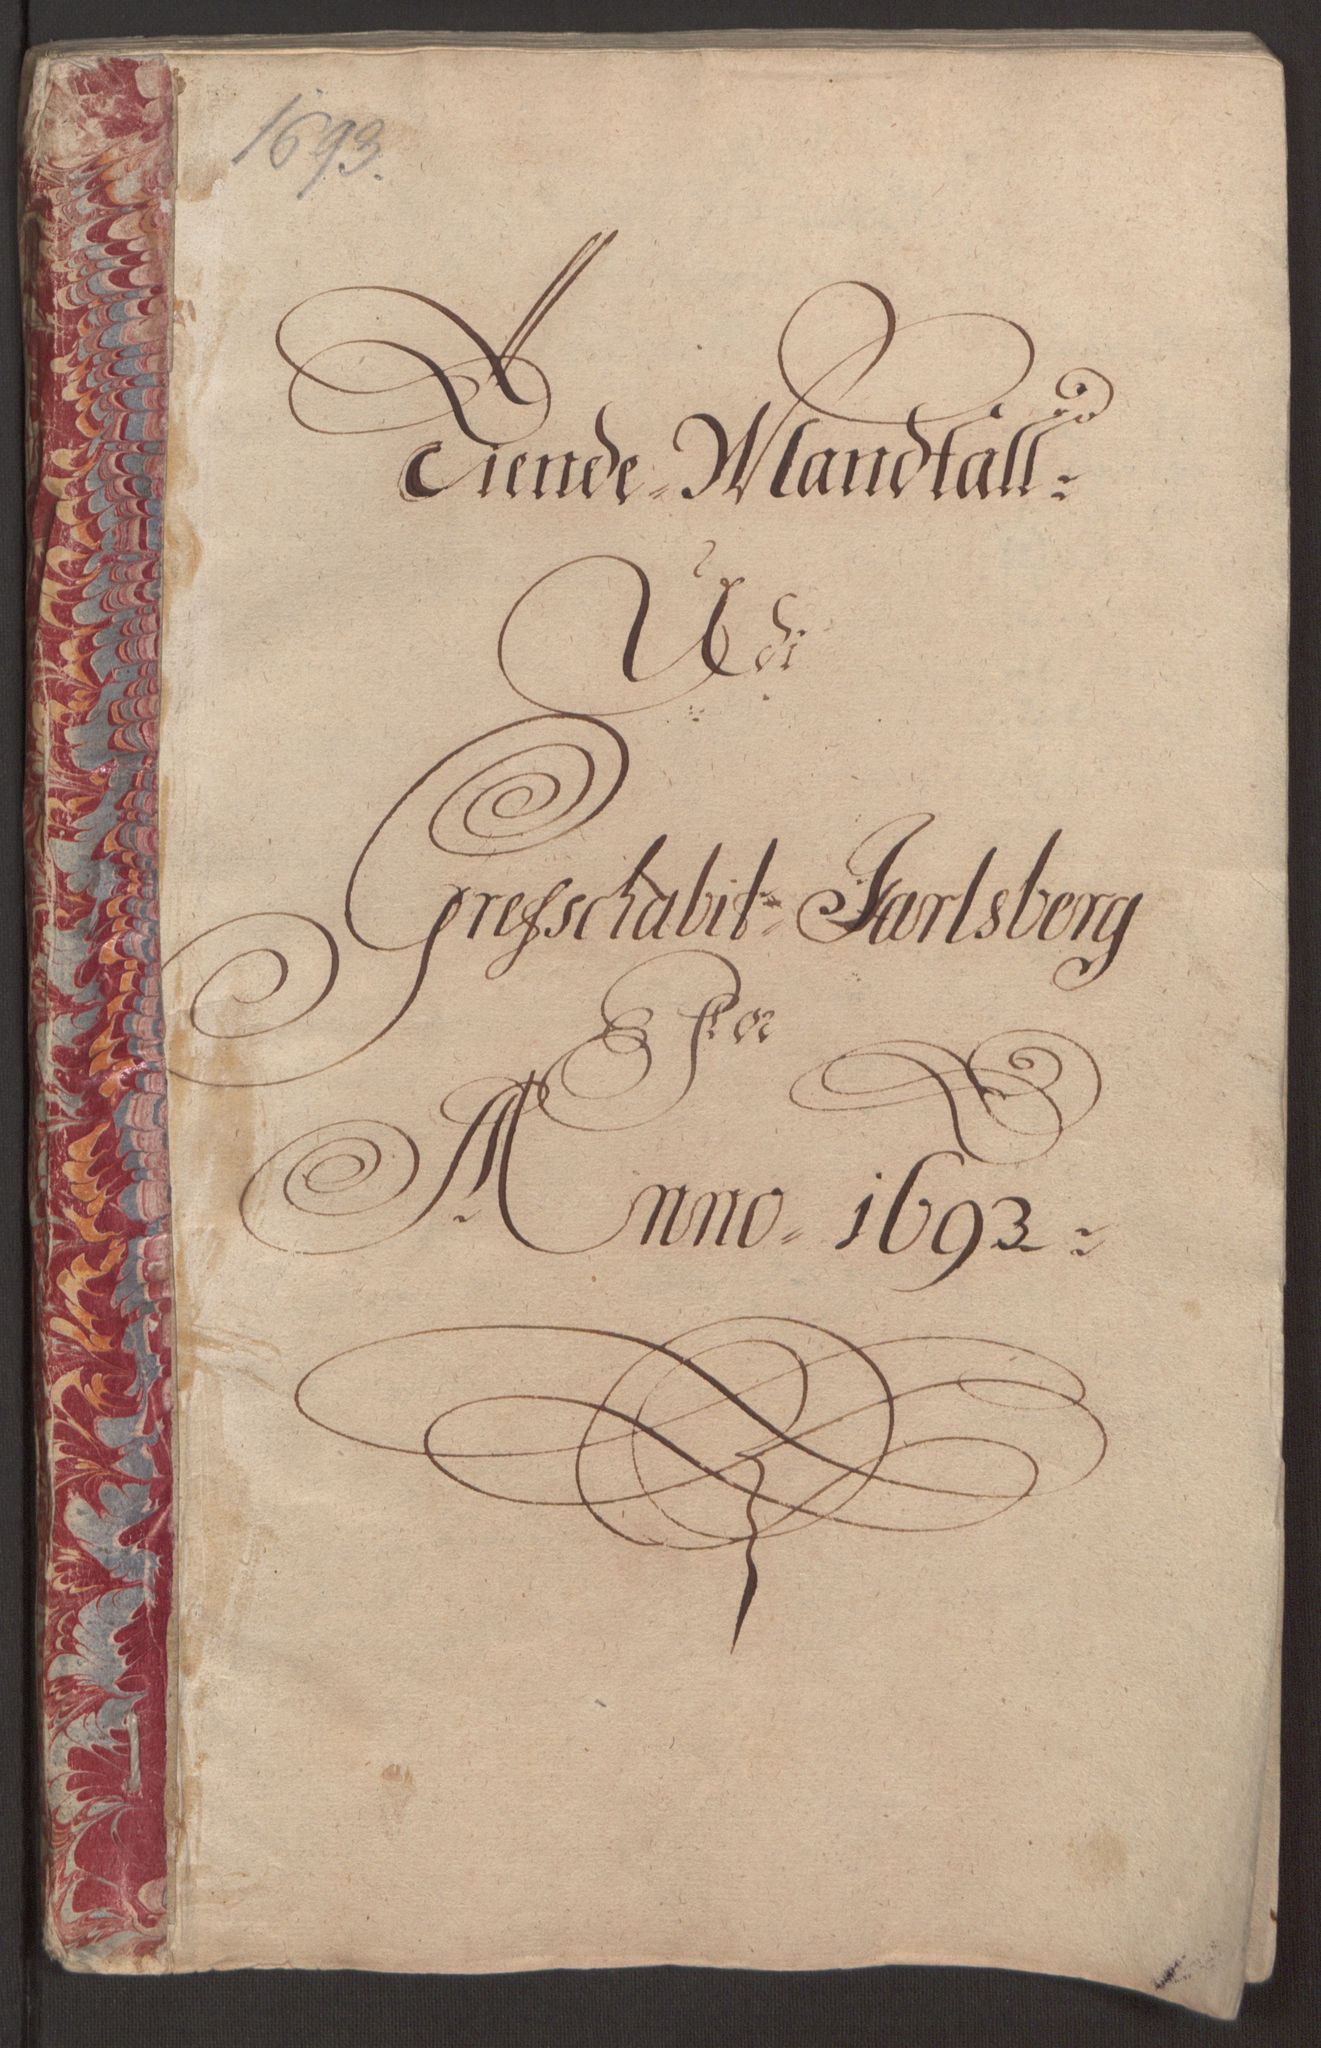 1693.
Tiende-Mandtall
Udi
Grefschabit Jarlsberg
For
Anno 1693